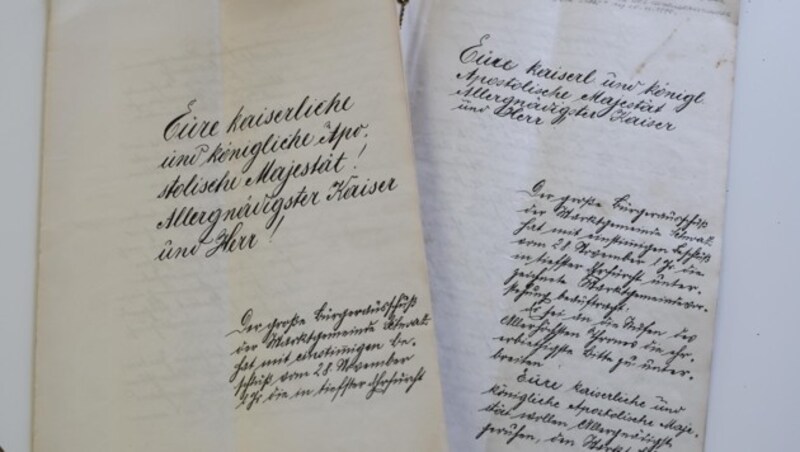 Eure kaiserliche
und königliche Apo-
stolische Majestät!
Allergnädigster Kaiser
und Herr!
Der große Bürgerausschuß
der Marktgemeinde
hat mit einstimmigen Be-
schluß vom 28. November
l. Js. die in tiefster Ehrfurcht
Eure kaiserl und königl
Apostolische Majestät
Allergnädigster Kaiser
und Herr
Der große Bürgerausschuß
der Marktgemeinde
hat mit einstimmigen Beschluß
vom 28. November l. Js. die
in tiefster Ehrfurcht unter-
zeichnete Marktgemeindevor-
stehung beauftragt:
Es sei an die Stufen des
Allerhöchsten Thrones die ehr-
erbietigste Bitte zu unter-
breiten
Eure kaiserliche und
königliche Apostolische Maje-
stät wollen Allergnädigst
geruhen, den Markt